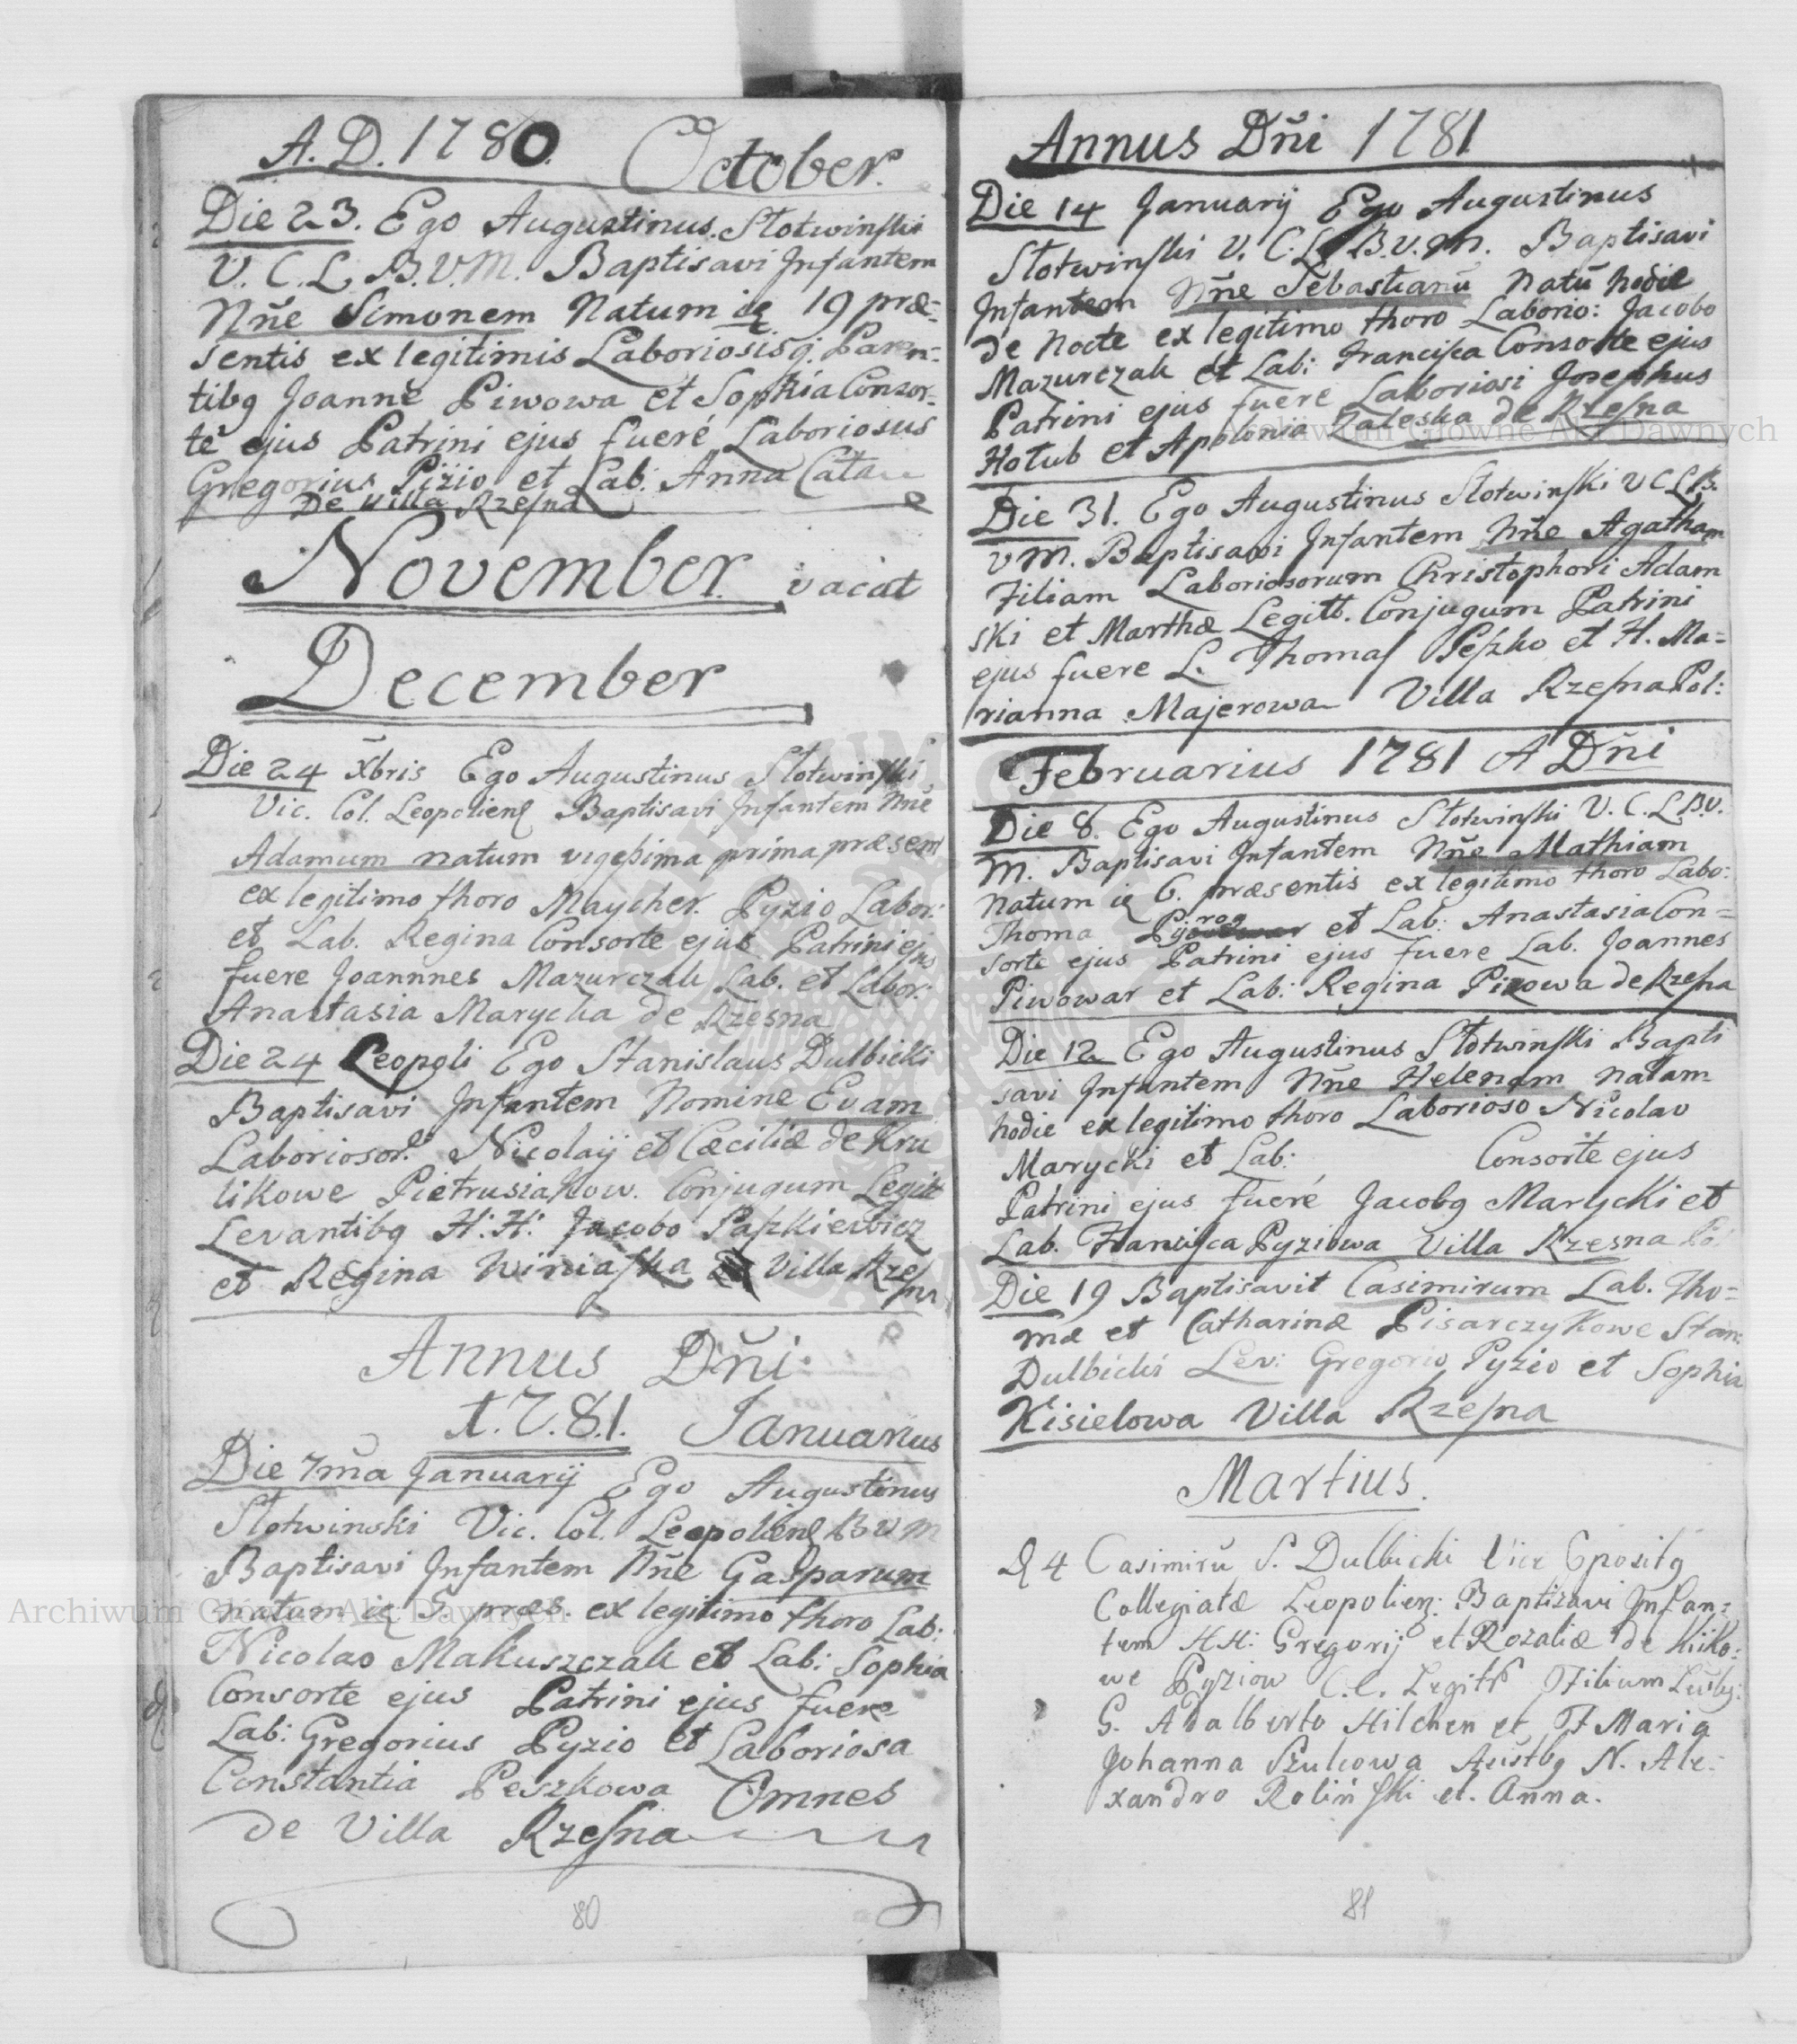 A.D. 1780. October.
Die 23. Ego Augustinus Słotwinski
V. C. L. B.V.M. Baptisavi Infantem
Nñe Simonem Natum 19 præ-
sentis ex legitimis Laboriosisq. Paren-
tibg Joanne Piwowa et Sophia Consor-
te ejus Patrini ejus fueré Laboriosus
Gregorius Pizio et Lab. Anna Cata
De Villa Rzesna
November vacat
December
Die 24 Xbris Ego Augustinus Słotwinski
Vic. Col. Leopolien Baptisavi Infantem Nñe
Adamum natum vigesima prima præsent
ex legitimo thoro Maycher. Pyzio Labor:
et Lab. Regina Consorte ejus Patrini ejus
fuere Joannnes Mazurczak Lab. et Labor:
Anastasia Marycka de Rzesna
Die 24 Leopoli Ego Stanislaus Dulbicki
Baptisavi Infantem Nomine Evam
Laboriosor. Nicolaij et Cæciliæ de Kru
likowe Pietrusiakow. Conjugum Legitt
Levantibg H. H. Jacobo Paszkiewicz
et Regina Winiaska Villa Rzesna
Annus Dñi
1.7.8.1. Januarius
Die 7ma Januarij Ego Augustinus
Słotwinski Vic. Col. Leopolien B V M
Baptisavi Infantem Nñe Gasparum
natum 5 præs. ex legitimo thoro Lab:
Nicolao Makuszczak et Lab: Sophia
Consorte ejus Patrini ejus fuere
Lab: Gregorius Pyzio et Laboriosa
Constantia Peszkowa Omnes
de Villa Rzesna
80
Annus Dñi 1781
Die 14 Januarij Ego Augustinus
Słotwinski V. C. L. B.V.M. Baptisavi
Infantem Nñe Sebastianũ Natũ hodie
de Nocte ex legitimo thoro Laborio: Jacobo
Mazurczak et Lab: Francisca Consorte ejus
Patrini ejus fuere Laboriosi Josephus
Hołub et Apolonia Zaleska de Rzesna
Die 31. Ego Augustinus Słotwinski V C L B.
V M. Baptisavi Infantem Nñe Agatham
Filiam Laboriosorum Christophori Adam
ski et Marthæ Legitt. Conjugum Patrini
ejus fuere L. Thomas Peszko et H. Ma-
rianna Majerowa Villa Rzesna Pol:
Februarius 1781 A Dñi
Die 8. Ego Augustinus Słotwinski V. C. L B.V.
M. Baptisavi Infantem Nñe Mathiam
Natum 6. præsentis ex legitimo thoro Labo:
Thoma et Lab: Anastasia Con-
sorte ejus Patrini ejus fuere Lab. Joannes
Piwowar et Lab: Regina Pizowa de Rzesna
Die 12 Ego Augustinus Słotwinski Bapti
savi Infantem Nñe Helenam natam
hodie ex legitimo thoro Laborioso Nicolao
Marycki et Lab: Consorte ejus
Patrini ejus fueré Jacobg Marycki et
Lab. Francisca Pyziowa Villa Rzesna
Die 19 Baptisavit Casimirum Lab. Tho-
mæ et Catharinæ Pisarczykowe Stan:
Dulbicki Lev: Gregorio Pyzio et Sophia
Kisielowa Villa Rzesna
Martius.
D 4 Casimirũ S. Dulbicki Vice
Collegiatæ Leopolien: Baptisavi Infan-
tem H.H: Gregorij et Rozaliæ de Kiiko-
we Pyziow C. C. Legitt Filium
G. Adalberto Hilchen et Maria
Johanna Szulcowa N. Ale-
xandro Roliński et. Anna.
81
Archiwum Główne Akt Dawnych
Archiwum Główne Akt Dawnych